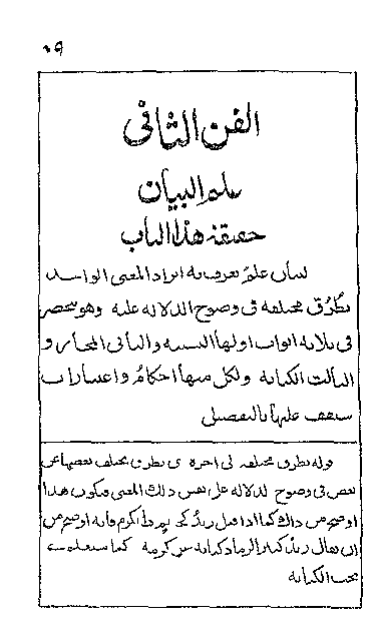 ٥٩
الفن الثاني
علم البيان
حقيقة هذا الباب
البيان علم يعرف به ايراد المعنى الواحد
بطُرُق مختلفة في وضوح الدلالة عليه وهو ينحصر
في ثلاثة ابواب اولها التشبيه والثاني المجاز و
الثالث الكناية ولكل منها احكامٌ واعتبارات
ستقف عليها بالتفصيل
قوله بطرق مختلفة الى اخره اى بطرق يختلف بعضها عن
بعض في وضوح الدلالة على نفس ذلك المعنى فيكون هذا
اوضح من ذاك كما اذا قيل زيدٌ كريم فانه اوضح من
ان يقال زيدٌ كثير الرماد كناية عن كرمه كما ستعلم
بحث الكناية